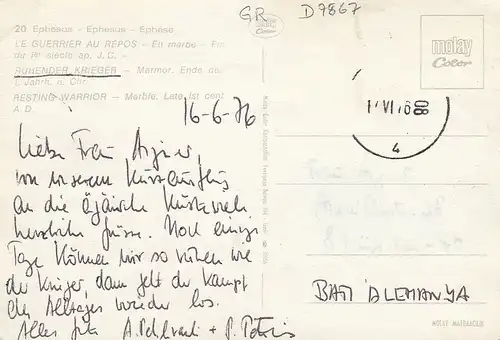 GR D 9867
20 Ephesus - Ephesus - Ephèse
LE GUERRIER AU REPOS - En marbe - Fin
du Ier siècle ap. J. C.
RUHENDER KRIEGER - Marmor. Ende des
I. Jahrh. n. Chr.
RESTING WARRIOR - Marble. Late Ist cent
A.D.
molay
Color
16-6-76
Liebe Frau
von unserem Kurzausflug
an die ägäische Küste viele
herzliche Grüsse. Noch einige
Tage können wir so ruhen wie
der Krieger, dann geht der Kampf
des Alltages wieder los.
Alles gute
4
BATI ALEMANYA
MOLAY MATBAACILIK